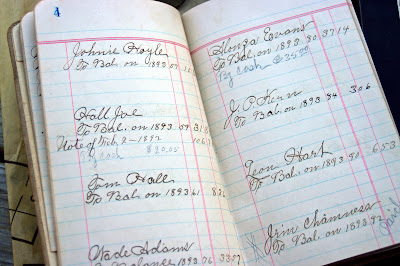 4
Johnie Hoyle
To Bal. on 1893.07
Hall Joe
To Bal. on 1893.
Note of Feb. 2-1892
By Cash $20.05
Tom Hall
To Bal. on 1893.61
Wade Adams
Balance
Alonza Evans
To Bal. on 1893.80 3714
By Cash $35.00
J. P. Kern
To Bal. on 1893.84 306
Leon Harp
To Bal. on 1893.90 653
Jim Chamness
To Bal. on 1893.92